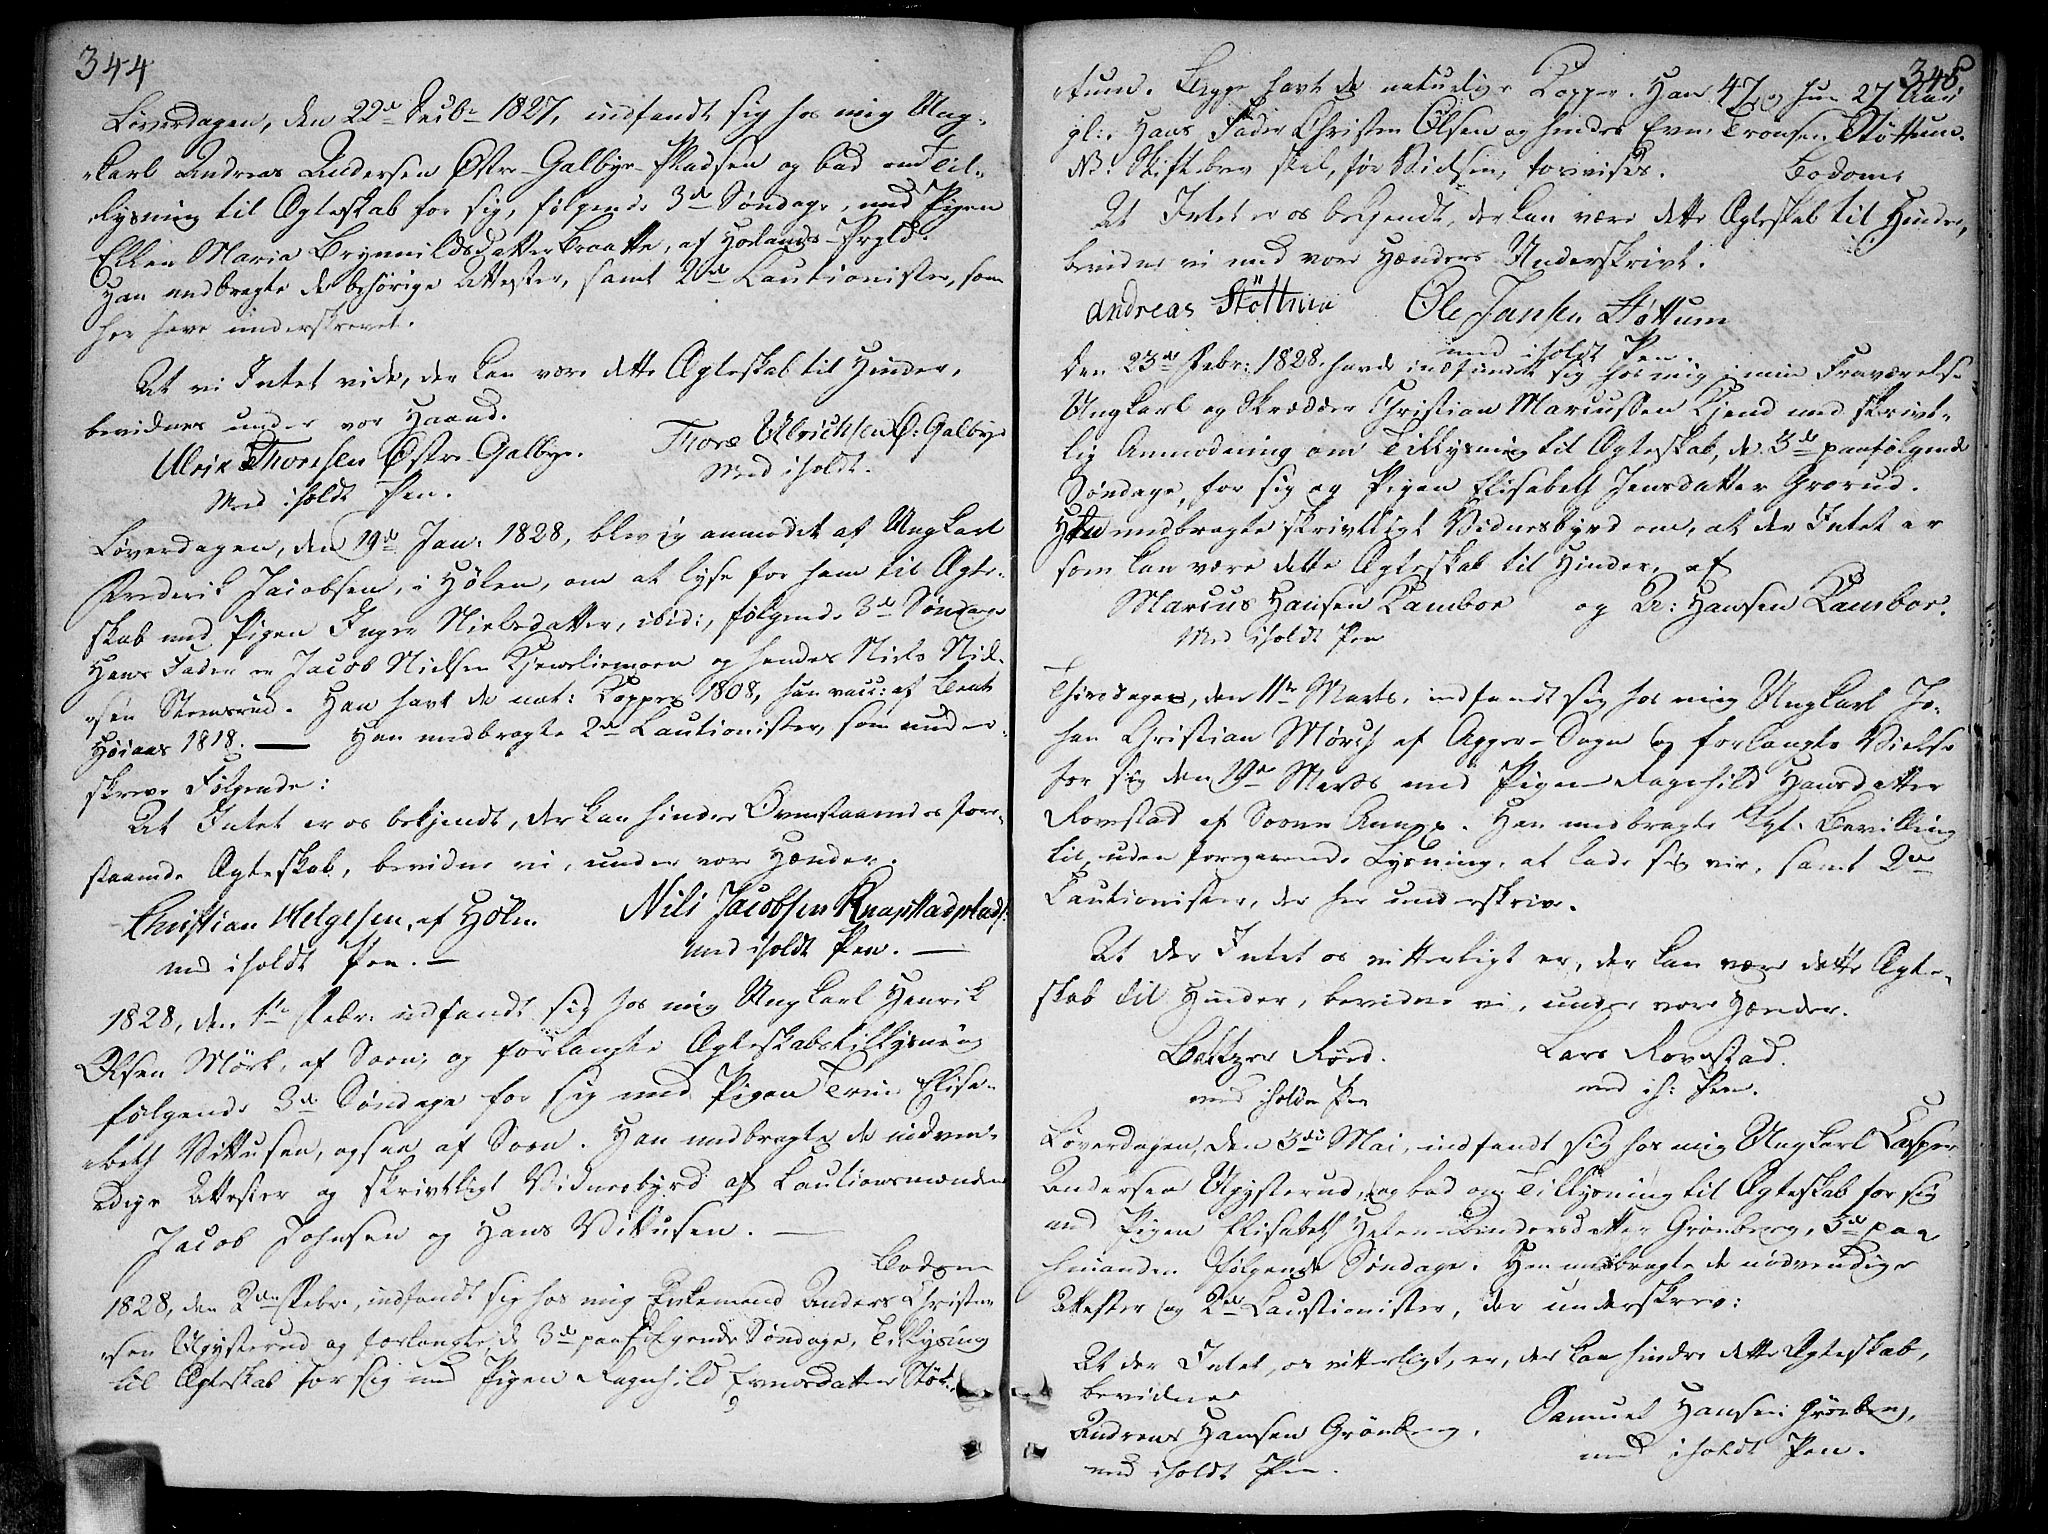 344
Løverdagen, den 22de Decbr 1827, indfandt sig hos mig Ung-
karl Andreas Andersen Østre-Galbye-Pladsen og bad om Til-
lysning til Ægteskab for sig, følgende 3de Søndage, med Pigen
Ellen Maria Brynnildsdatter Braatte, af Hølands-Prgld.
Han medbragte de behørige Attester, samt 2de Cautionister, som
her have underskrevet.
At vi Intet vide, der kan være dette Ægteskab til Hinder,
bevidnes under vor Haand.
Ulrik Thoresen Østre-Galbye. Thore Ulrichsen Ø: Galbye
Med iholdt Pen. Med iholdt.
Løverdagen, den 19de Jan: 1828, blev jeg anmodet af Ungkarl
Frederik Jacobsen, i Hølen, om at lyse for ham til Ægte-
skab med Pigen Inger Nielsdatter, ibid:, følgende 3de Søndage
Hans Fader er Jacob Nielsen Kjensliemoen og hendes Niels Niel-
sen Steensrud. Han havt de nat: Kopper 1808, hun vacc: af Bent
Høiaas 1818. — Han medbragte 2de Cautionister, som under-
skreve Følgende:
At Intet er os bekjendt, der kan hindre Ovenstaaendes fore-
staaende Ægteskab, bevidne vi, under vore Hænder.
Christian Helgesen, af Hølen Nils Jacobsen Knapstadplads:
med iholdt Pen. — med iholdt Pen. —
1828, den 1te Febr: indfandt sig hos mig Ungkarl Henrik
Olsen Mörk, af Soon, og forlangte Ægteskabstillysning
følgende 3de Søndage for sig med Pigen Trine Elisa-
beth Vittusen, ogsaa af Soon. Han medbragte de nødven-
dige Attester og skrivtligt Vidnesbyrd af Cautionsmændene
Jacob Johnsen og Hans Vittusen. —
Bodom
1828, den 2den Febr., indfandt sig hos mig Enkemand Anders Christen-
sen Uglysterud og forlangte, de 3de paafølgende Søndage, Tillysning
til Ægteskab for sig med Pigen Ragnhild Evensdatter Støt-
345.
tum. Begge havt de naturlige Kopper. Han 47 og hun 27 Aar
gl:. Hans Fader Christen Olsen og hendes Even Tronsen Støttum.
NB. Skiftebrev skal, før Vielsen, forevises. Bodom.
At Intet er os bekjendt, der kan være dette Ægteskab til Hinder,
bevidne vi med vore Hænders Underskrivt.
Andreas Støttum Ole Jansen Støttum
med iholdt Pen.
Den 23de Febr: 1828, havde indfundet sig hos mig i min Fraværelse
Ungkarl og Skrædder Christian Marcussen Kjend med skrivt-
lig Anmodning om Tillysning til Ægteskab, de 3de paafølgende
Søndage, for sig og Pigen Elisabeth Jensdatter Grorud.
Han medbragte skrivtligt Vidnesbyrd om, at der Intet er
som kan være dette Ægteskab til Hinder, af
Marcus Hansen Kamboe og A: Hansen Kamboe.
Med iholdt Pen
Thirsdagen, den 11te Marts, indfandt sig hos mig Ungkarl Jo-
han Christian Mørch af Agger-Sogn og forlangte Vielse
for sig den 19de Marts med Pigen Ragnhild Hansdatter
Rovestad af Soons Annex. Han medbragte Kgl. Bevilling
til, uden foregaaende Lysning, at lade sig vie, samt 2de
Cautionister, der her underskrive.
At der Intet os vitterligt er, der kan være dette Ægte-
skab til Hinder, bevidne vi, under vore Hænder.
Baltzer Röed. Lars Rovestad.
med iholden Pen med ih: Pen.
Løverdagen, den 3die Mai, indfandt sig hos mig Ungkarl Casper
Andersen Uglysterud, og bad om Tillysning til Ægteskab for sig
med Pigen Elisabeth Helene Andersdatter Grönberg, 3de paa
hinanden følgende Søndage. Han medbragte de nødvendige
Attester og 2de Caustionister, der underskrev:
At der Intet, os vitterligt, er, der kan hindre dette Ægteskab,
bevidnes
Andreas Hansen Grönberg. Samuel Hansen Grönberg,
med iholdt Pen. med iholdt Pen.